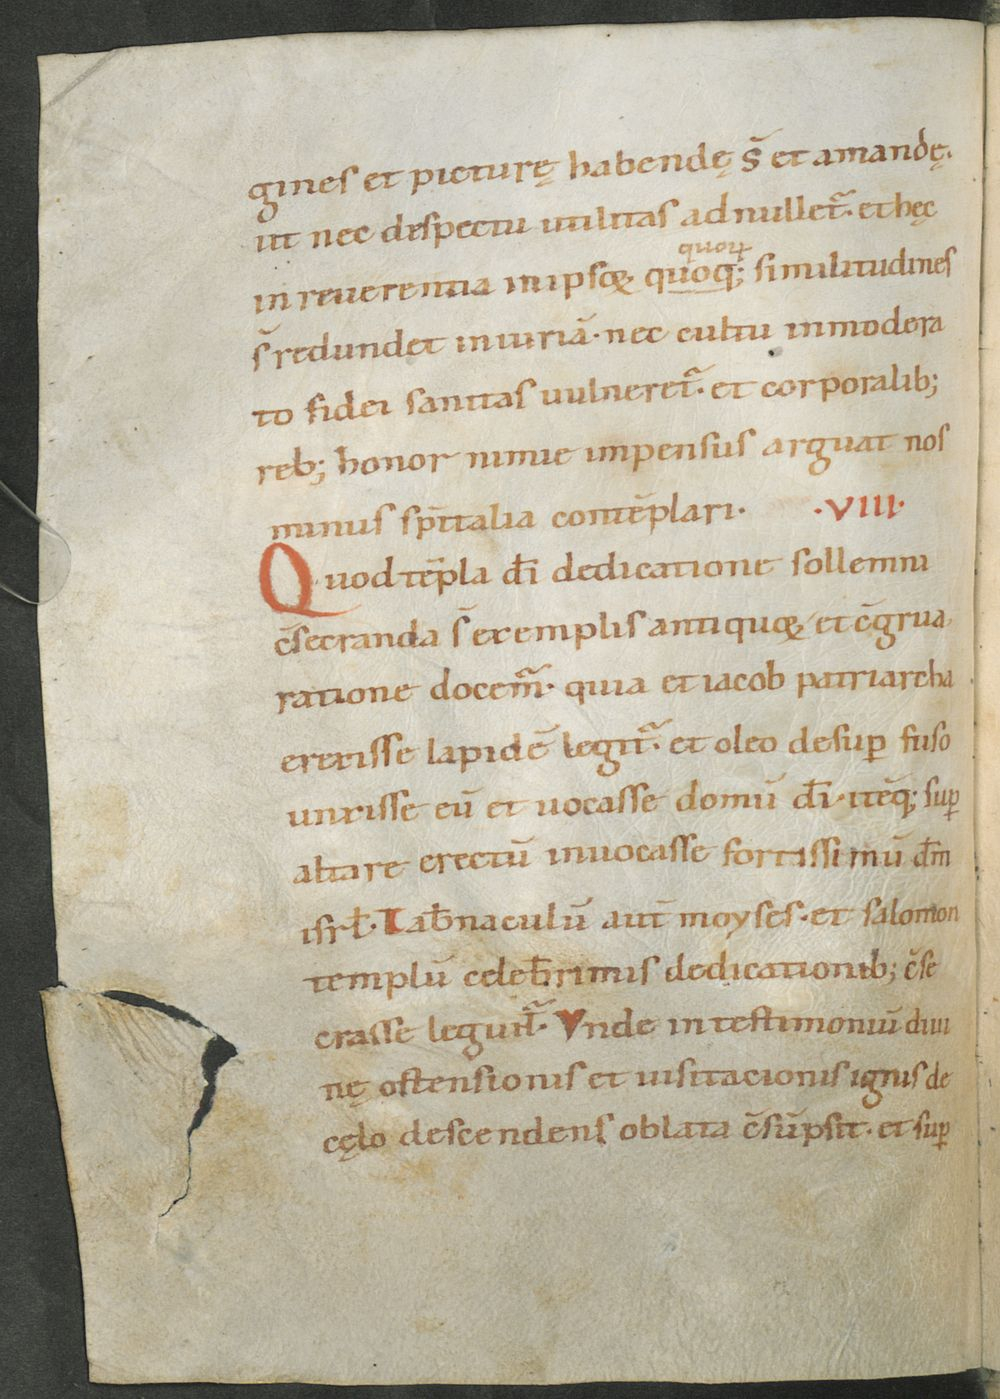 gines et picturę habendę s̄ et amandę.
ut nec despectu utilitas adnulletᷓ. et hęc
quoꝝ
in reuerentia in ipsoꝝ quoq; similitudines
s̄ redundet iniuriā. nec cultu inmodera
to fidei sanitas uulneretᷓ. et corporalib;
reb; honor nimie impensus arguat nos
minus sp̄italia contēplari. .VIII.
Quod tēpla dī dedicatione sollemni
c̄secranda s̄ exemplis antiquoꝝ et c̄grua
ratione docemᷓ. quia et iacob patriarcha
erexisse lapidē legitᷓ. et oleo desuꝑ fuso
unxisse eū et uocasse domū dī. itēq; suꝑ
altare erectū inuocasse fortissimū dm̄
isrl̄. Tab̄naculū aut̄ moyses. et salomon
templū celeb̄rimis dedicationib; c̄se
crasse legunt̄ᷓ. Vnde in testimoniū diui
nę ostensionis et uisitacionis ignis de
cęlo descendens oblata c̄sūpsit. et suꝑ